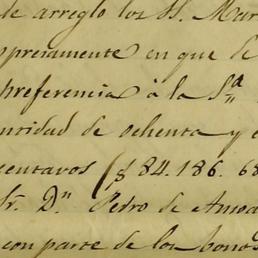 de arreglo los SS. Mar
presamente en que de
preferencia á la Sª
ntidad de ochenta y c
centavos ($ 84.186. 68
Sr. Dⁿ Pedro de Amoa
con parte de los bonos